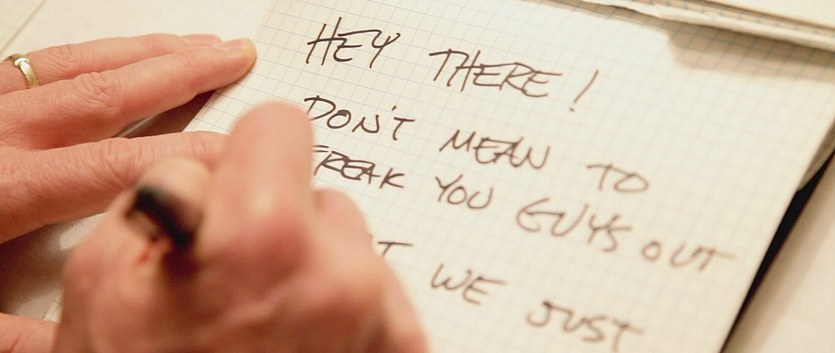 HEY THERE!
DON'T MEAN TO
FREAK YOU GUYS OUT
WE JUST